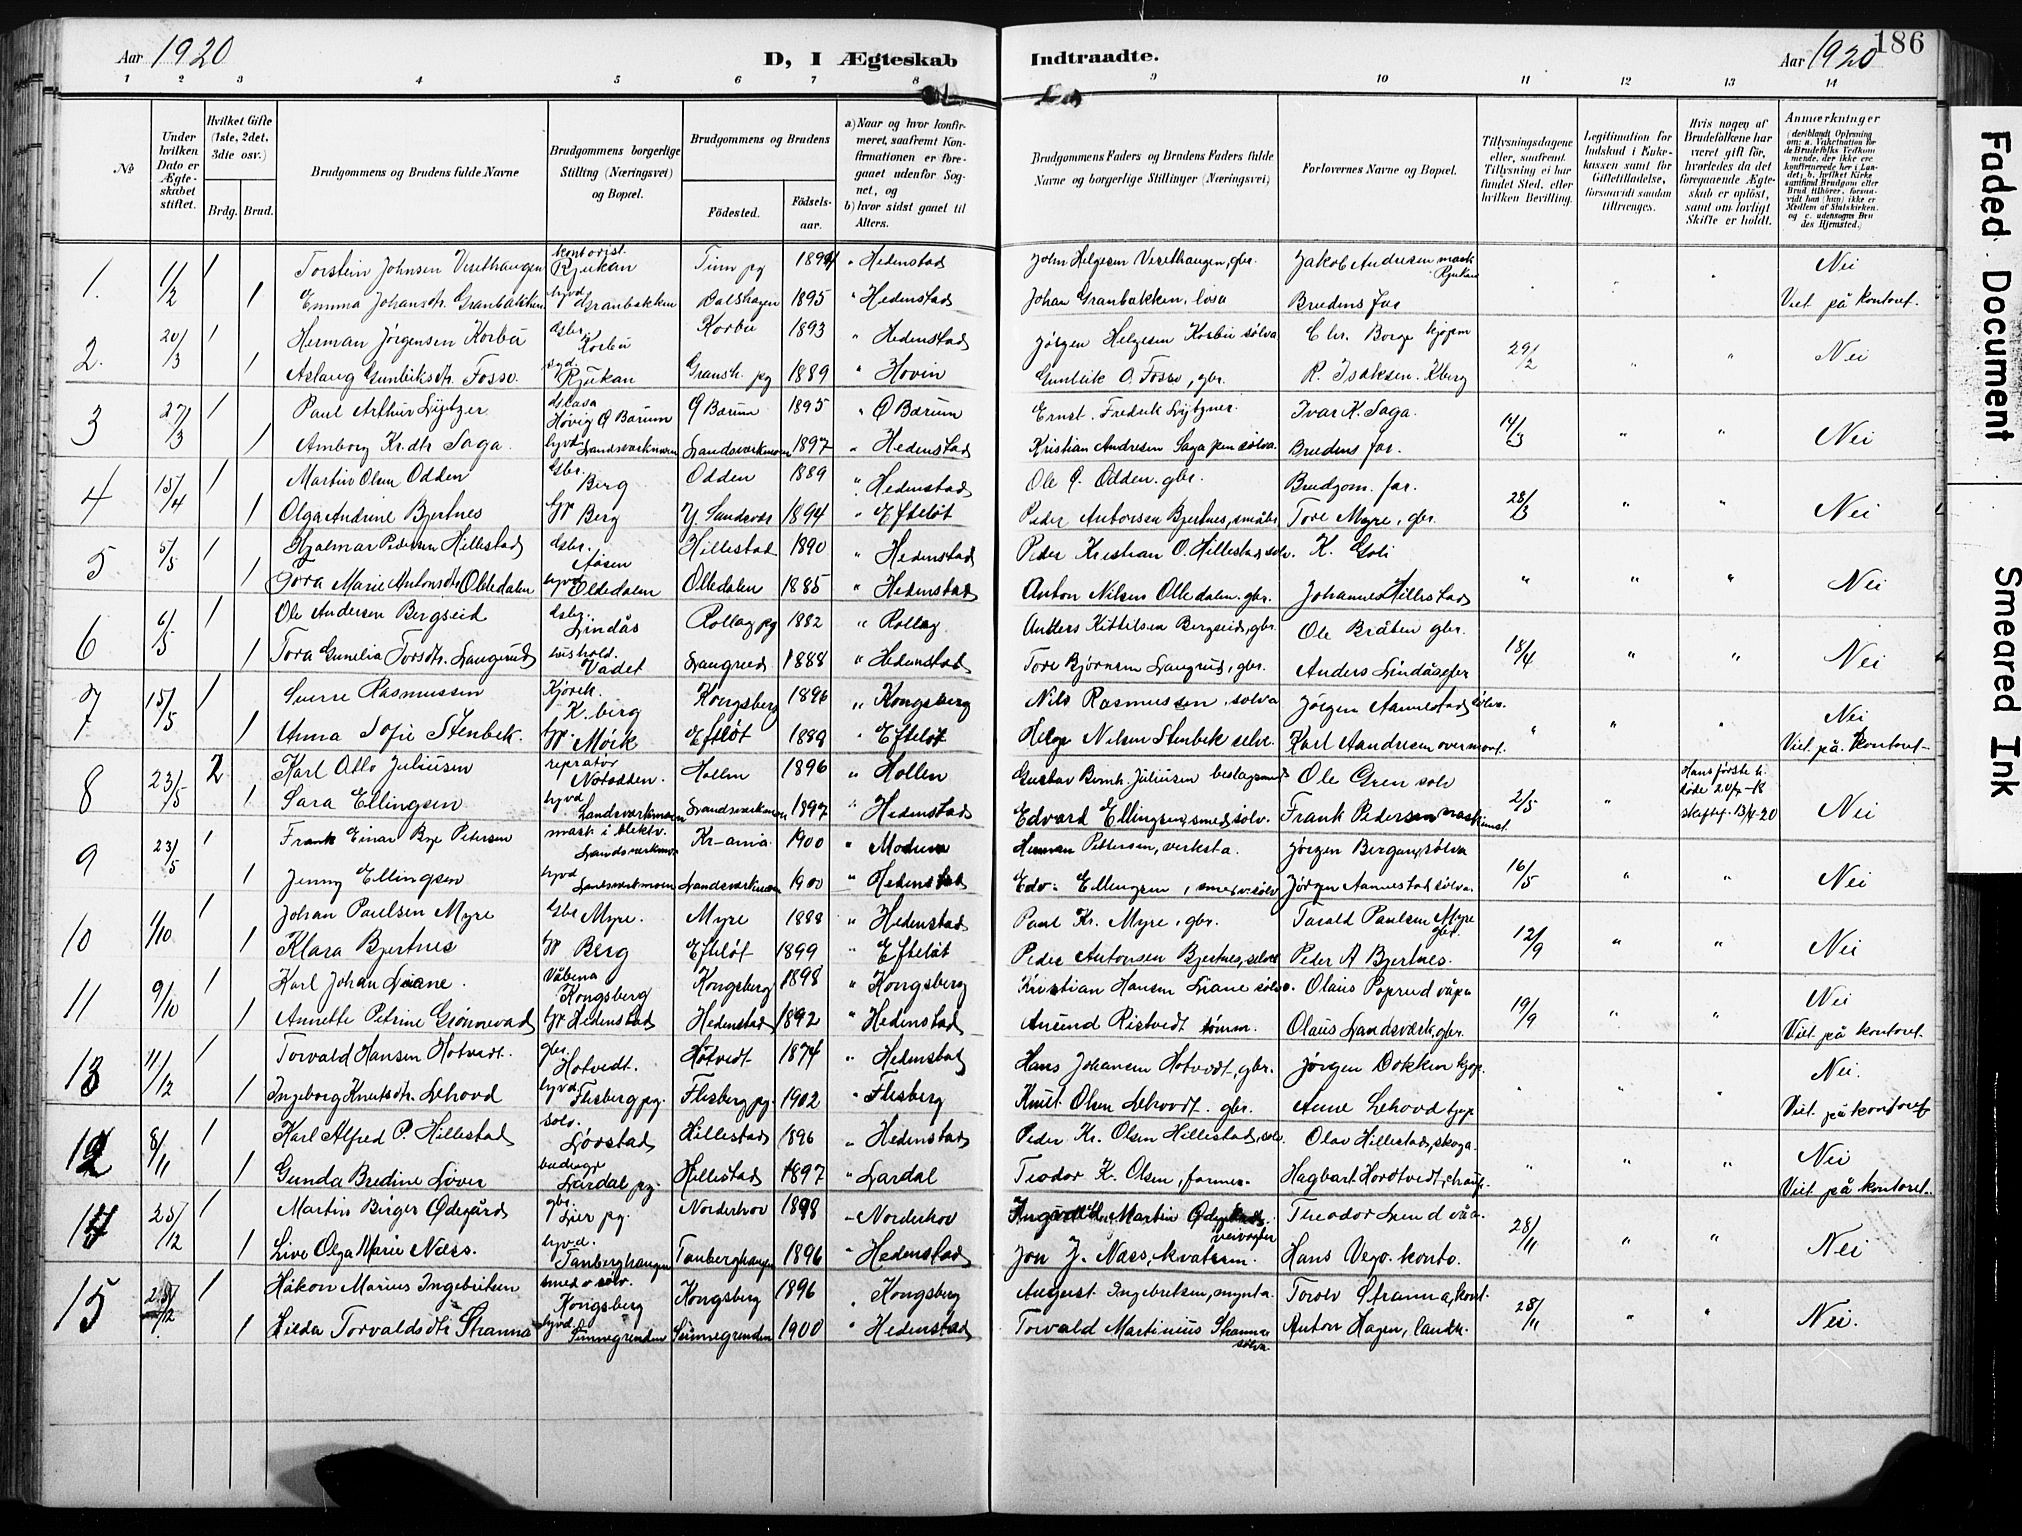 Aar 1920
D, I Ægteskab
Indtraadte.
Aar 1920
186
1 2 3 4 5 6 7 8 9 10 11 12 13 14
№
Under hvilken Dato er Ægteskabet stiftet.
Hvilket Gifte (1ste, 2det, 3die osv.)
Brdg. Brud.
Brudgommens og Brudens fulde Navne
Brudgommens borgerlige Stilling (Næringsvei) og Bopæl.
Brudgommens og Brudens
Födested.
Födselsaar.
a) Naar og hvor konfirmeret, saafremt Konfirmationen er foregaaet udenfor Sognet, og
b) hvor sidst gaaet til Alters.
Brudgommens Faders og Brudens Faders fulde Navne og borgerlige Stillinger (Næringsvei)
Forlovernes Navne og Bopæl.
Tillysningsdagene eller, saafremt Tillysning ei har fundet Sted, efter hvilken Bevilling.
Legitimation for Indskud i Enkekassen samt for Giftetilladelse, forsaavidt saadan tiltrænges.
Hvis nogen af Brudefolkene har været gift för, hvorledes da det foregaaende Ægteskab er oplöst, samt om lovligt Skifte er holdt.
Anmærkninger
1. 1/2 1 Torstein Johnsen Vesethaugen kontorist Rjukan Tinn pg 1894 " Hedenstad John Helgesen Vesethaugen, gbr. Jakob Andresen mask Rjukan Nei
1 Emma Johansdtr. Granbakken hjvd Granbakken Dalshagen 1895 " Hedenstad Johan Granbakken, losa Brudens far Viet på kontoret.
2. 20/3 1 Herman Jørgensen Korbu Gbr. Korbu Korbu 1893 " Hedenstad Jørgen Helgesen Korbu sølva Chr. Borge kjøpm 29/2 " " Nei
1 Aslaug Gunleiksdtr. Fosso. Rjukan Gransh. pg 1889 " Hovin Gunleik O. Fosso, gbr. R. Isaksen. Kberg
3 27/3 1 Paul Arthur Lytzer Høvig Ø Bærum Ø Bærum 1895 " Ø Bærum Ernst. Fredrik Lytzner. Ivar K. Saga. 14/3 " " Nei
1 Amborg Kr.dtr Saga. hjvd Landsverkmoen Landsverkmoen 1897 " Hedenstad Kristian Andresen Saga pen sølva Brudens far.
4 15/4 1 Martin Olsen Odden Gbr. Berg Odden 1889 " Hedenstad Ole P. Odden. gbr. Brudgom. far. 28/3 " " Nei
1 Olga Andrine Bjertnes Berg Y. Sandsvær 1894 " Efteløt Peder Antonsen Bjertnes, småbr Tore Myre, gbr.
5 5/5 1 Hjalmar Pedersen Hillestad Gbr. Aasen Hillestad 1890 " Hedenstad Peder Kristian O. Hillestad, sølv. K. Goli " " " Nei
1 Tora Marie Antonsdtr Olledalen hjvd Olledalen Olledalen 1885 " Hedenstad Anton Nilsen Olledalen. gbr. Johannes Hillestad
6 6/5 1 Ole Andersen Bergseid Gbr. Lindås Rollag pg 1882 " Rollag Anders Kittilsen Bergseid, gbr. Ole Bråten gbr. 18/4 " " Nei
1 Tora Gunelia Torsdtr. Langerud hushold. Vadet Langrud 1888 " Hedenstad Tore Bjørnsen Langrud, gbr. Anders Lindås gbr
7 15/5 1 Sverre Rasmussen K.berg Kongsberg 1896 " Kongsberg Nils Rasmussen, sølva Jørgen Aannestad sølv. " " " Nei
1 Anna Sofie Stenbek. Mørk Efteløt 1889 " Efteløt Helge Nilsen Stenbek sølv. Karl Aandresen overmont. Viet på kontoret
8 23/5 2 Karl Otto Juliusen reprator Notodden. Hollen 1896 " Hollen Gustav Bernh. Juliusen beslagsmed Ole Gren sølv 2/5 " Hans første h. døde 20/7-18 skiftef. 13/4-20 Nei
1 Sara Ellingsen hjvd Landsverkmoen Landsverkmoen 1897 " Hedenstad Edvard Ellingsen, smed sølv. Frank Pedersen maskinmst.
9 23/5 1 Frank Einar Bye Petersen mask i elektv. Landsverkmo Kr-ania 1900 " Modum Herman Pettersen, verksta. Jørgen Bergan, sølva 16/5 " " Nei
1 Jenny Ellingsen hjvd Landsverkmoen Landsverkmoen 1900 " Hedenstad Edv. Ellingsen, smed v. sølv Jørgen Aannestad sølva.
10 1/10 1 Johan Paulsen Myre Gbr Myre. Myre 1888 " Hedenstad Paul Kr. Myre, gbr. Tarald Paulsen Myre gbr. 12/9 " " Nei
1 Klara Bjertnes Berg Efteløt 1899 " Efteløt Peder Antonsen Bjertnes, sølva Peder A Bjertnes.
11 9/10 1 Karl Johan Liane. Våbena Kongsberg Kongsberg 1898 " Kongsberg Kristian Hansen Liane sølva. Olaus Poprud våpa 19/9 " " Nei
1 Annette Petrine Grønnevad Hedenstad Hedenstad 1892 " Hedenstad Anund Ristvedt tømm. Olaus Landsværk, gbr. Viet på kontoret.
13 11/12 1 Torvald Hansen Hotvedt. gbr. Hotvedt. Hotvedt 1874 " Hedenstad Hans Johansen Hotvedt, gbr. Jørgen Dokken kjøp. " " " Nei.
1 Ingeborg Knutsdtr. Lehovd hjvd Flesberg pg. Flesberg pg. 1902 " Flesberg Knut Olsen Lehovdt. gbr. Arne Lehovd kjøp Viet på kontoret
12 8/11 1 Karl Alfred P. Hillestad sølv. Lørstad Hillestad 1896 " Hedenstad Peder Kr. Olsen Hillestad, sølv. Olav Hillestad, skoga " " " Nei
1 Gunda Bredine Lover Lardal pg. Hillestad 1897 " Lardal Teodor K. Olsen, former Hagbart Hordtvedt, chauf. Viet på kontoret.
14 25/12 1 Martin Birger Ødegård gbr. Lier pg. Norderhov 1898 " Norderhov Martin Ødegård. veivogter Theodor Lund våa. 28/11 " " Nei
1 Live Olga Marie Næss. hjvd. Tanberghaugen Tanberghaugen 1896 " Hedenstad Jon J. Næss, kvaterm. Hans Vego. konto.
15 25/12 1 Håkon Marius Ingebritsen smed v sølv. Kongsberg Kongsberg 1896 " Kongsberg August Ingebretsen, mynta. Torolv Stranna, kont. 28/11 " " Nei.
1 Hilda Torvaldsdtr Stranna hjvd. Sunnegrenden Sunnegrenden 1900 " Hedenstad Torvald Martinius Stranna sølva Anton Hagen, landh.
Faded Document
Smeared Ink